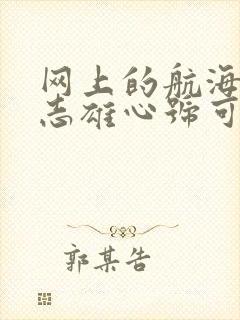 网上的航海
志雄心號可
郭某告